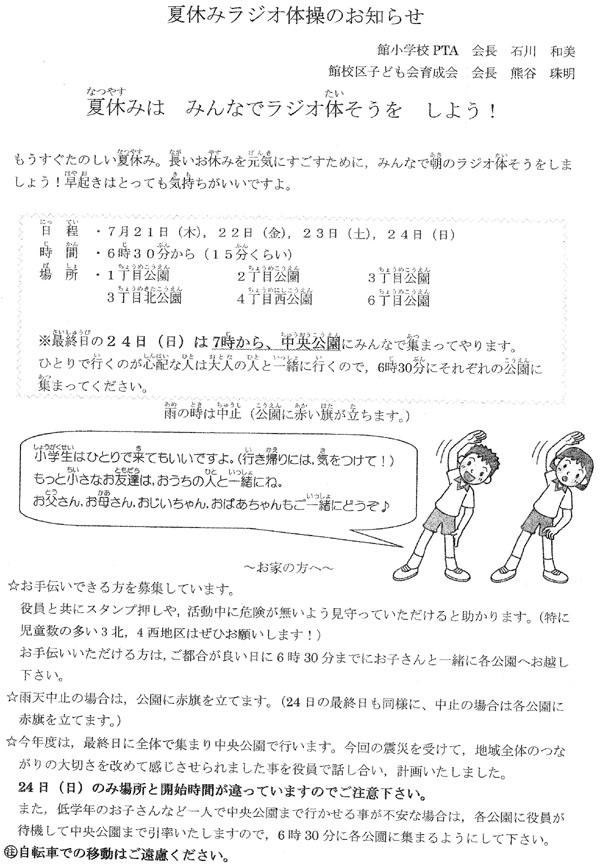 夏休みラジオ体操のお知らせ
館小学校PTA 会長 石川 和美
館校区子ども会育成会 会長 熊谷 珠明
夏休みは みんなでラジオ体そうを しよう！
もうすぐたのしい夏休み。長いお休みを元気にすごすために，みんなで朝のラジオ体そうをしま
しょう！早起きはとっても気持ちがいいですよ。
日程 ・7月21日（木），22日（金），23日（土），24日（日）
時間 ・6時30分から（15分くらい）
場所 ・1丁目公園 2丁目公園 3丁目公園
3丁目北公園 4丁目西公園 6丁目公園
※最終日の24日（日）は7時から、中央公園にみんなで集まってやります。
ひとりで行くのが心配な人は大人の人と一緒に行くので，6時30分にそれぞれの公園に
集まってください。
雨の時は中止（公園に赤い旗が立ちます。）
小学生はひとりで来てもいいですよ。（行き帰りには、気をつけて！）
もっと小さなお友達は、おうちの人と一緒にね。
お父さん、お母さん、おじいちゃん、おばあちゃんもご一緒にどうぞ♪
～お家の方へ～
☆お手伝いできる方を募集しています。
役員と共にスタンプ押しや，活動中に危険が無いよう見守っていただけると助かります。（特に
児童数の多い3北，4西地区はぜひお願いします！）
お手伝いいただける方は，ご都合が良い日に6時30分までにお子さんと一緒に各公園へお越し
下さい。
☆雨天中止の場合は，公園に赤旗を立てます。（24日の最終日も同様に、中止の場合は各公園に
赤旗を立てます。）
☆今年度は，最終日に全体で集まり中央公園で行います。今回の震災を受けて，地域全体のつな
がりの大切さを改めて感じさせられました事を役員で話し合い，計画いたしました。
24日（日）のみ場所と開始時間が違っていますのでご注意下さい。
また，低学年のお子さんなど一人で中央公園まで行かせる事が不安な場合は，各公園に役員が
待機して中央公園まで引率いたしますので，6時30分に各公園に集まるようにして下さい。
㊟自転車での移動はご遠慮ください。